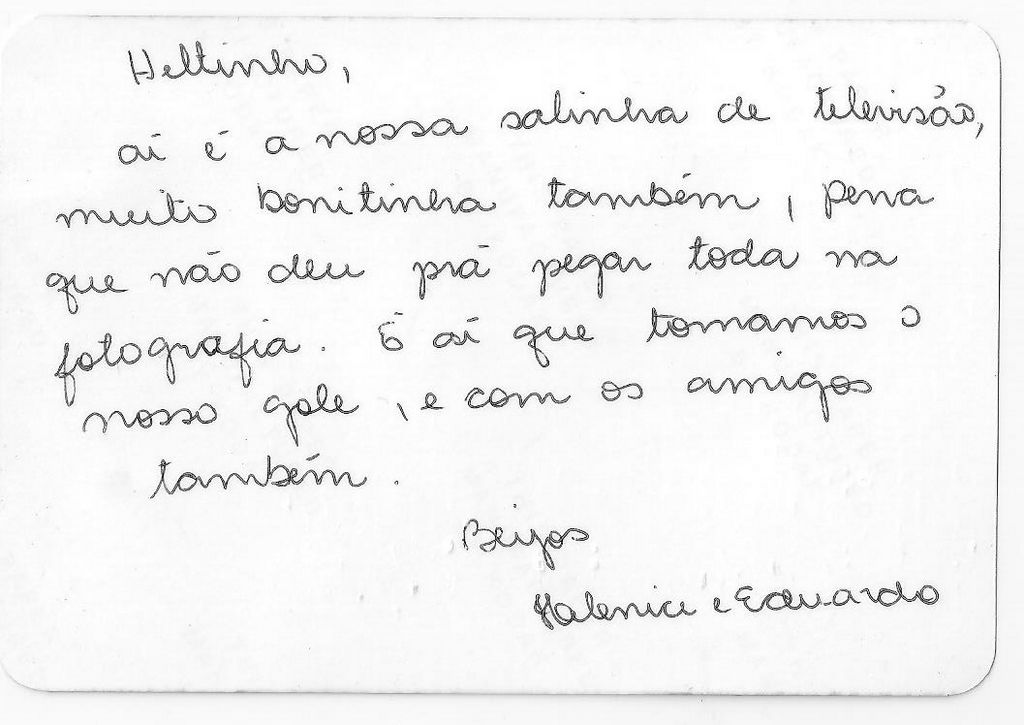 Heltinho,
aí é a nossa salinha de televisão,
muito bonitinha também, pena
que não deu prá pegar toda na
fotografia. É aí que tomamos o
nosso gole, e com os amigos
também.
Beijos
Valenice e Eduardo